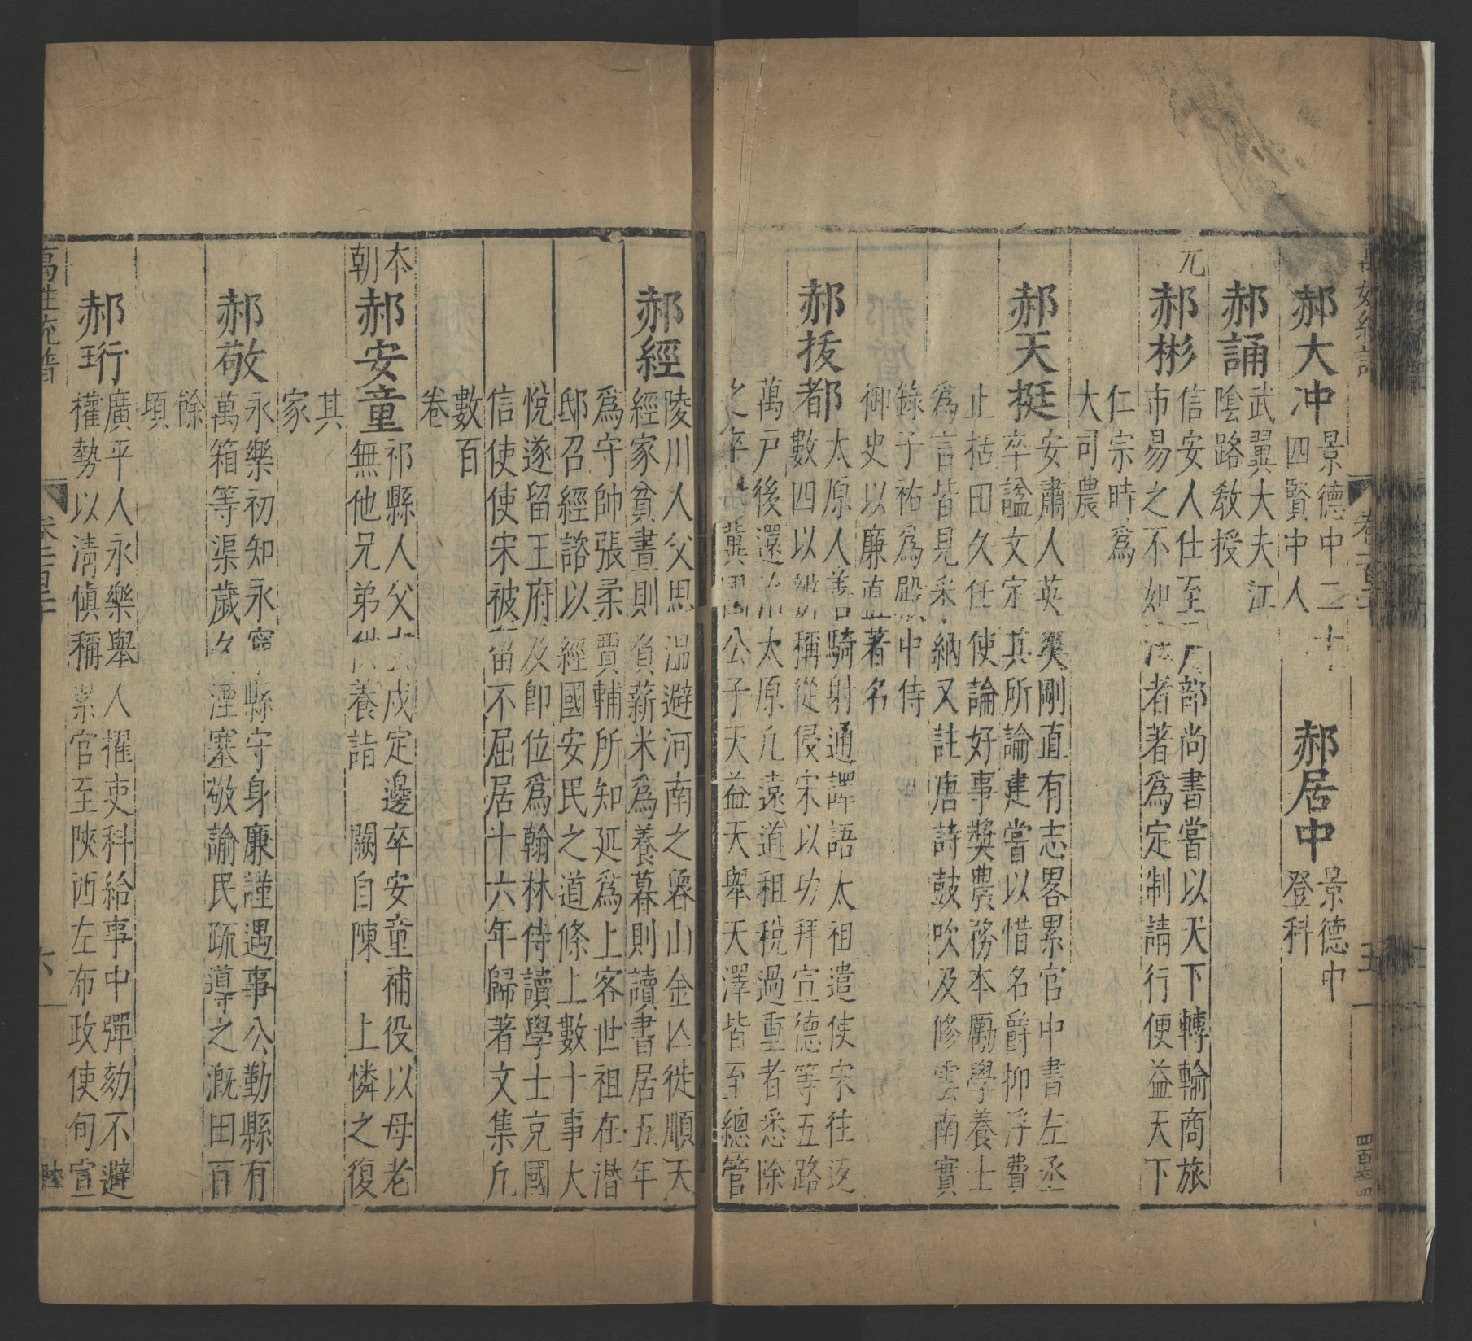 郝大冲 景德中二十
四賢中人
郝居中 景德中
登科
郝誦 武翼大夫江
陰路敎授
元
郝彬 信安人仕至戶部尚書嘗以天下轉輸商旅
市易之不如法者著爲定制請行便益天下
仁宗時爲
大司農
郝天挺 安肅人英爽剛直有志畧累官中書左丞
卒諡文定其所論建嘗以惜名爵抑浮費
止括田久任使論好事奬農務本勵學養士
爲言皆見采納又註唐詩鼓吹及修雲南實
錄子祐爲殿中侍
御史以廉直著名
郝拔都 太原人善騎射通譯語太祖遣使宋往返
數四以辨稱從侵宋以功拜宣德等五路
萬戶後還治太原凡遠道租稅過重者悉除
之卒 冀國公子天益天舉天澤皆至總管
郝經 陵川人父思溫避河南之魯山金亡徙順天
經家貧晝則負薪米爲養暮則讀書居五年
爲守帥張柔賈輔所知延爲上客世祖在潛
邸召經諮以經國安民之道條上數十事大
悅遂留王府及卽位爲翰林侍讀學士充國
信使使宋被留不屈居十六年歸著文集凡
數百
卷
本
朝
郝安童 祁縣人父 戍定邊卒安童補役以母老
無他兄弟供養詣 闕自陳 上憐之復
其
家
郝敬 永樂初知永寧縣守身廉謹遇事公勤縣有
萬箱等渠歲久湮塞敬諭民疏導之漑田百
餘
頃
郝珩 廣平人永樂舉人擢吏科給事中彈劾不避
權勢以淸愼稱累官至陝西左布政使旬宣
萬姓統譜
六